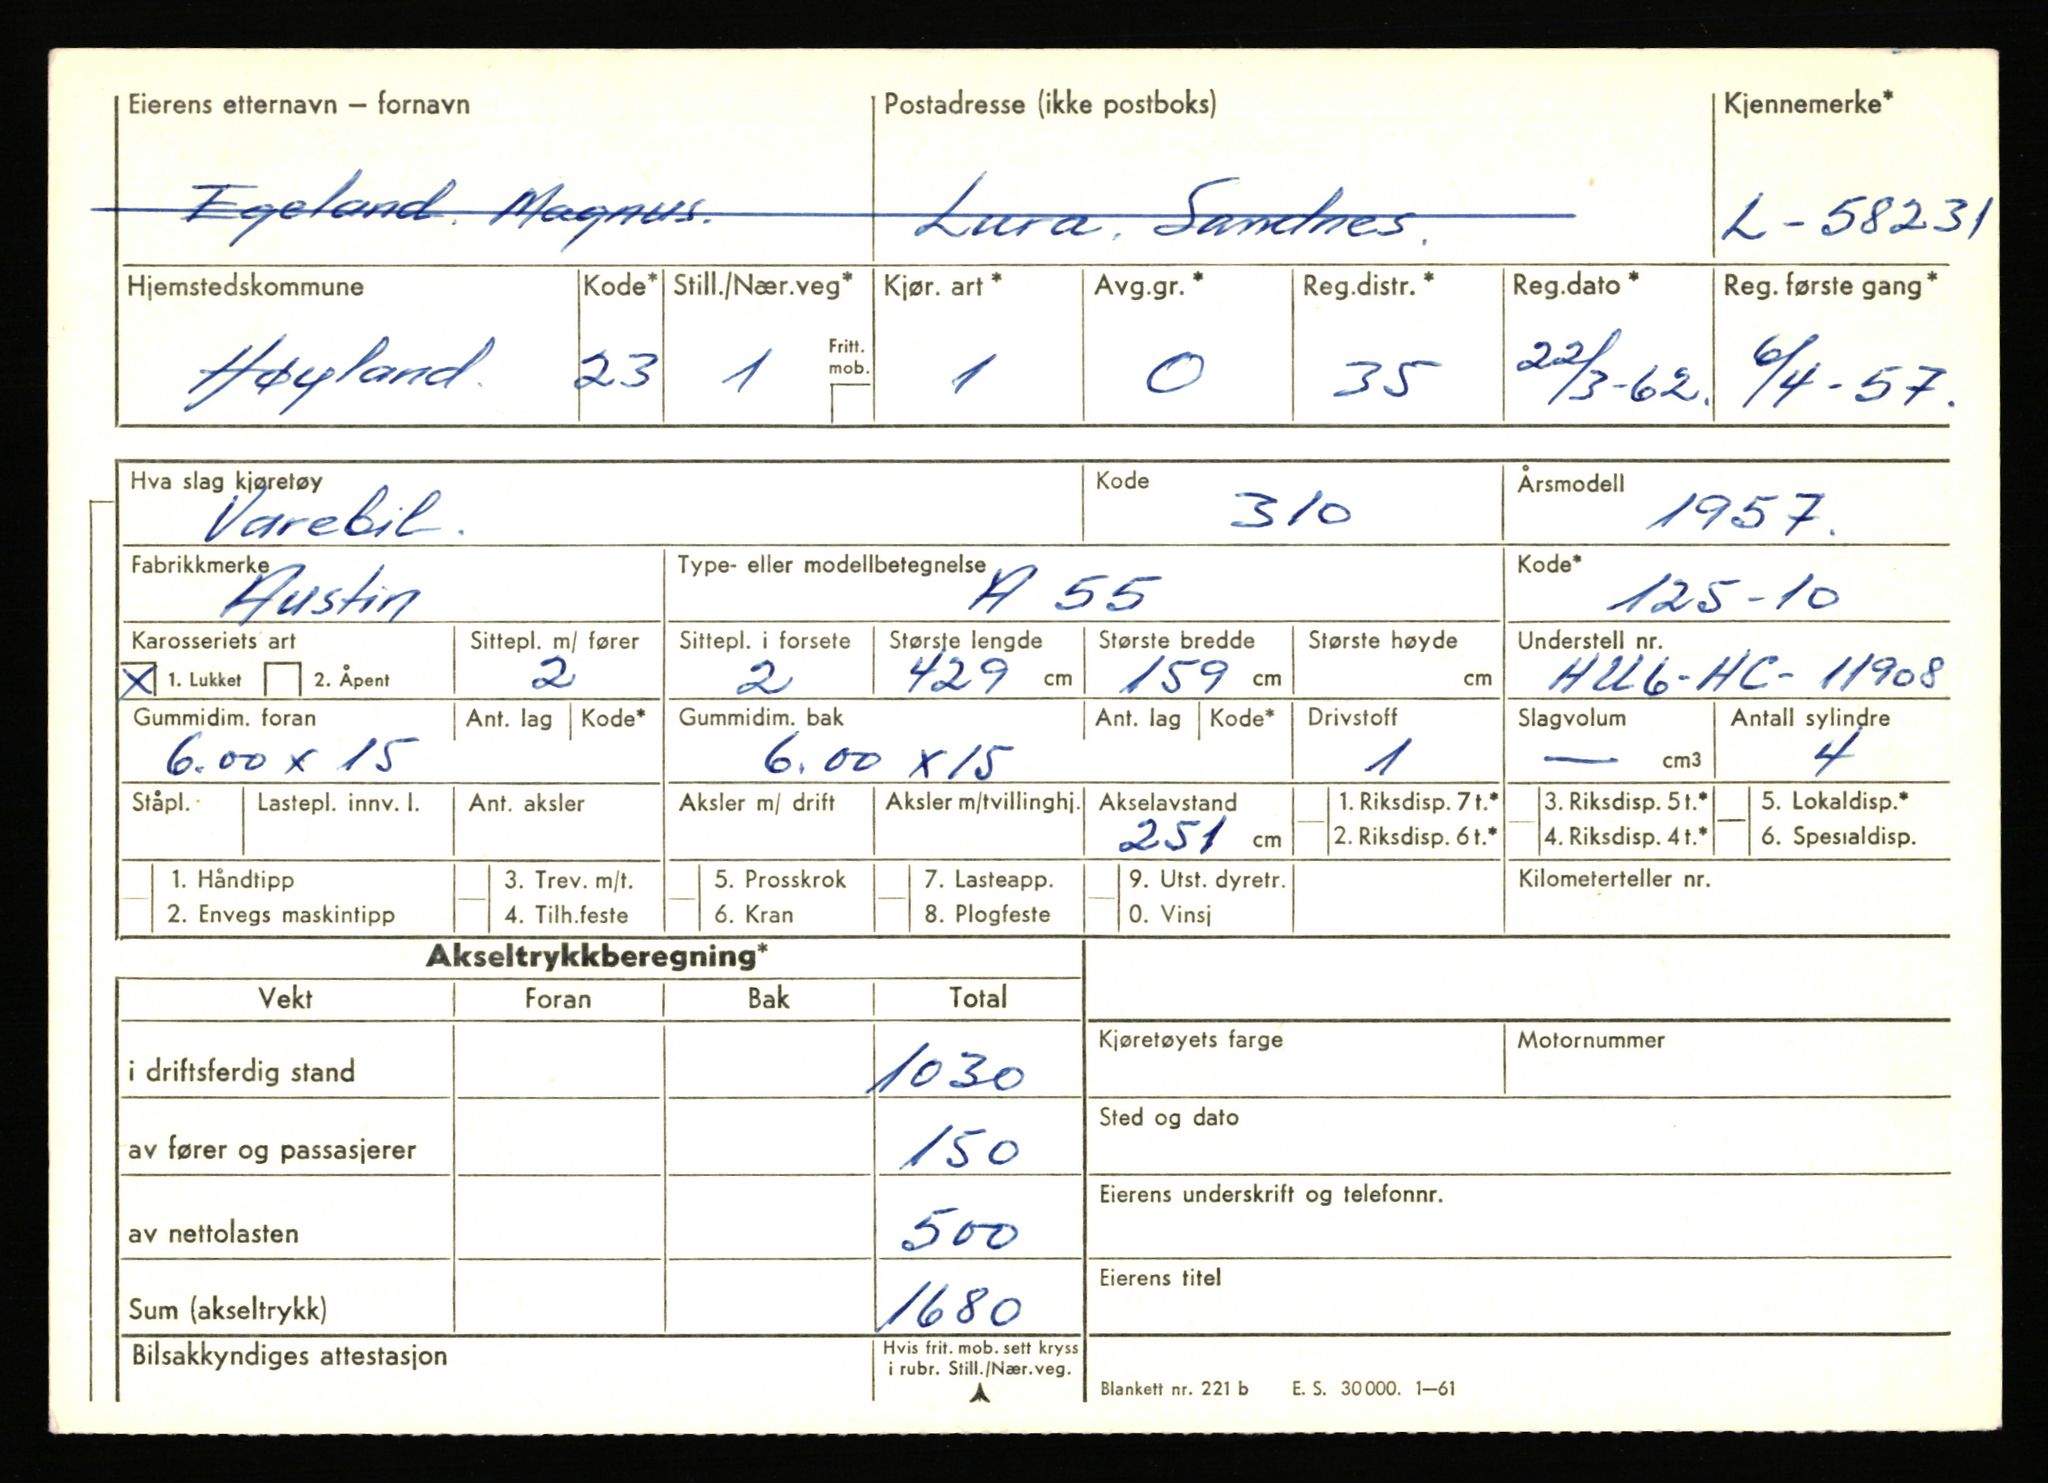 Eierens etternavn – fornavn Postadresse (ikke postboks) Kjennemerke*
Egeland. Magnus. Lura. Sandnes. L-58231
Hjemstedskommune Kode* Still./Nær.veg* Kjør. art* Avg.gr.* Reg.distr.* Reg.dato* Reg. første gang*
Fritt. mob.
Høyland. 23 1 1 0 35 22/3-62. 6/4-57.
Hva slag kjøretøy Kode Årsmodell
Varebil. 310 1957.
Fabrikkmerke Type- eller modellbetegnelse Kode*
Austin A 55 125-10
Karosseriets art Sittepl. m/ fører Sittepl. i forsete Største lengde Største bredde Største høyde Understell nr.
X 1. Lukket 2. Åpent 2 2 429 cm 159 cm cm HU6-HC-11908
Gummidim. foran Ant. lag Kode* Gummidim. bak Ant. lag Kode* Drivstoff Slagvolum Antall sylindre
6.00 x 15 6.00 x 15 1 — cm3 4
Ståpl. Lastepl. innv. l. Ant. aksler Aksler m/ drift Aksler m/tvillinghj. Akselavstand 1. Riksdisp. 7 t.* 3. Riksdisp. 5 t.* 5. Lokaldisp.*
251 cm 2. Riksdisp. 6 t.* 4. Riksdisp. 4 t.* 6. Spesialdisp.
1. Håndtipp 3. Trev. m/t. 5. Prosskrok 7. Lasteapp. 9. Utst. dyretr. Kilometerteller nr.
2. Envegs maskintipp 4. Tilh.feste 6. Kran 8. Plogfeste 0. Vinsj
Akseltrykkberegning*
Vekt Foran Bak Total
Kjøretøyets farge Motornummer
i driftsferdig stand 1030
Sted og dato
av fører og passasjerer 150
Eierens underskrift og telefonnr.
av nettolasten 500
Eierens titel
Sum (akseltrykk) 1680
Bilsakkyndiges attestasjon Hvis frit. mob. sett kryss
i rubr. Still./Nær.veg.
Blankett nr. 221 b E. S. 30 000. 1–61